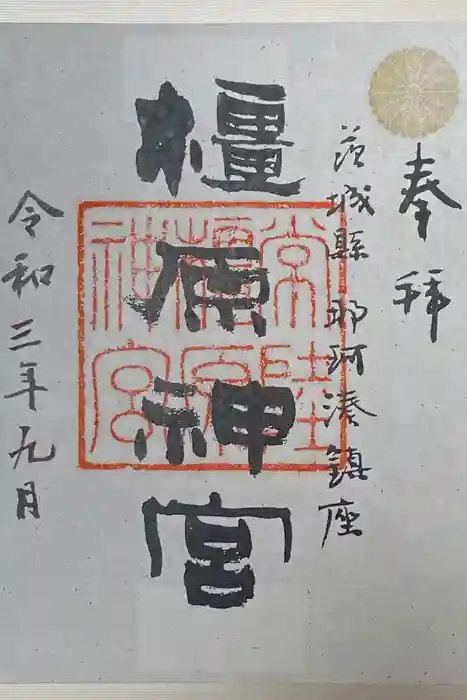 奉拝
茨城縣 那珂湊鎮座
橿原神宮
常陸
橿原
神宮
令和三年九月